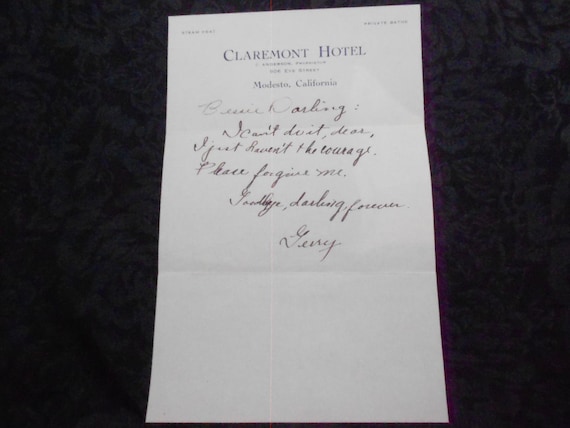 STEAM HEAT
PRIVATE BATHS
CLAREMONT HOTEL
ANDERSON, PROPRIETOR
EYE STREET
Modesto, California
Bessie Darling:
I can't do it, dear,
I just haven't the courage.
Please forgive me.
Goodbye, darling, forever.
Gerry